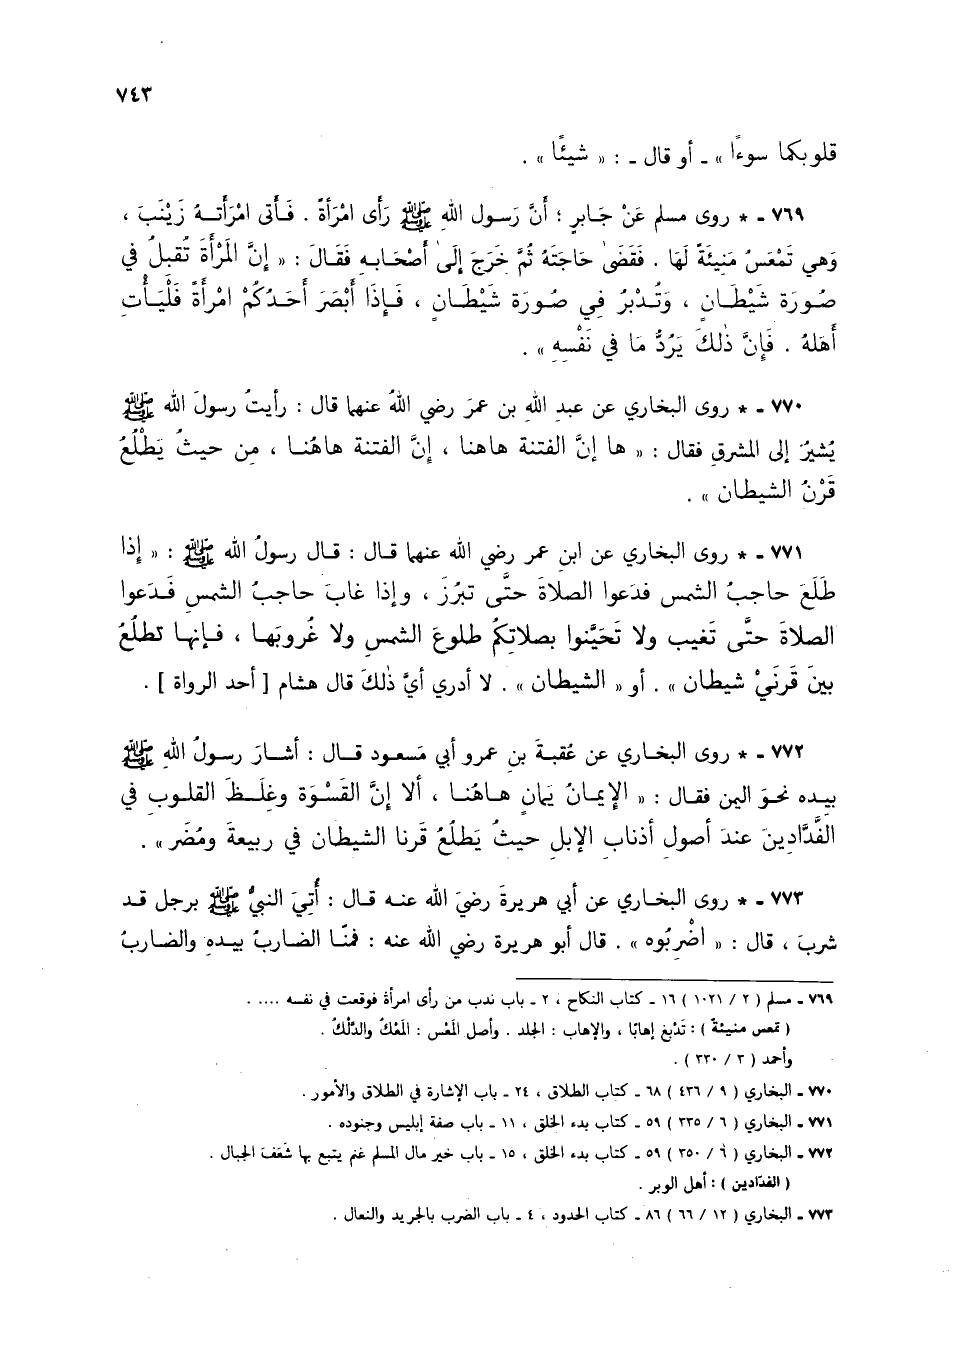 ٧٤٣
قلوبكما سوءًا » ـ أو قال ـ : « شيئًا » .
٧٦٩ ـ * روى مسلم عَنْ جَابرٍ ؛ أَنَّ رَسول اللهِ ﷺ رَأى امْرَأةً . فَأتى امْرَأتَـهُ زَيْنَبَ ،
وَهي تَمْعَسُ مَنِيئَةً لَهَا . فَقَضىٰ حَاجَتَهُ ثُمَّ خَرَجَ إلَىٰ أَصْحَابهِ فَقَالَ : « إنَّ المَرْأَةَ تُقبلُ في
صُورَة شَيْطَانٍ ، وَتُدْبرُ فِي صُورَة شَيْطَانٍ ، فَإذَا أَبْصَرَ أَحَدُكُمْ امْرأَةً فَلْيَأتِ
أَهَلهُ . فَإنَّ ذٰلكَ يَرُدُّ مَا في نَفْسهِ » .
٧٧٠ ـ * روى البخاري عن عبدِ اللهِ بن عمرَ رضي اللهُ عنهما قال : رأيتُ رسولَ الله ﷺ
يُشيرُ إلى المشرقِ فقال : « ها إنَّ الفتنة هاهنا ، إنَّ الفتنة هاهُنـا ، مِن حيثُ يَطْلُعُ
قَرْنُ الشيطان » .
٧٧١ ـ * روى البخاري عن ابنِ عمر رضي الله عنهما قـال : قـال رسولُ الله ﷺ : « إذا
طَلَعَ حاجبُ الشمسِ فدَعوا الصلاةَ حتَّى تبرُزَ ، وإذا غابَ حاجبُ الشمسِ فَـدَعوا
الصلاةَ حتَّى تَغيب ولا تَحَيَّنوا بصلاتِكمُ طلوعَ الشمسِ ولا غُروبَهـا ، فـإنهـا تطلُعُ
بينَ قَرنَيْ شيطان » . أو « الشيطان » . لا أدري أيَّ ذٰلكَ قال هشام [ أحد الرواة ] .
٧٧٢ ـ * روى البخاري عن عُقبةَ بن عمرو أبي مَسعود قـال : أشـارَ رسولُ اللهِ ﷺ
بيدهِ نحوَ اليمن فقال : « الإيمـانُ يَمانٍ هـاهُنـا ، ألا إنَّ القَسْوَة وغِلَـظَ القلوب في
الفَّدَّادِينَ عندَ أصولِ أذنابِ الإبلِ حيثُ يَطلُعُ قَرنا الشيطان في ربيعةَ ومُضَر » .
٧٧٣ ـ * روى البخـاري عن أبي هريرةَ رضيَ الله عنـه قال : أُتِيَ النبيُّ ﷺ برجل قـد
شربَ ، قال : « اضْرِبُوه » . قال أبو هريرة رضي الله عنه : فمنّـا الضاربُ بيدهِ والضـاربُ
٧٦٩ ـ مسلم ( ٢ / ١٠٢١ ) ١٦ ـ كتاب النكاح ، ٢ ـ باب ندب من رأى امرأة فوقعت في نفسه .... .
( تمعس منيئة ) : تَدْبغ إهابًا ، والإهاب : الجلد . وأصل المَعْس : المَعْكُ والدَّلْكُ .
وأحمد ( ٣ / ٣٣٠ ) .
٧٧٠ ـ البخاري ( ٩ / ٤٣٦ ) ٦٨ ـ كتاب الطلاق ، ٢٤ ـ باب الإشارة في الطلاق والأمور .
٧٧١ ـ البخاري ( ٦ / ٣٣٥ ) ٥٩ ـ كتاب بدء الخلق ، ١١ ـ باب صفة إبليس وجنوده .
٧٧٢ ـ البخاري ( ٦ / ٣٥٠ ) ٥٩ ـ كتاب بدء الخلق ، ١٥ ـ باب خير مال المسلم غنم يتبع بها شَعَفَ الجبال .
( الفدّادين ) : أهل الوبر .
٧٧٣ ـ البخاري ( ١٢ / ٦٦ ) ٨٦ ـ كتاب الحدود ، ٤ ـ باب الضرب بالجريد والنعال .